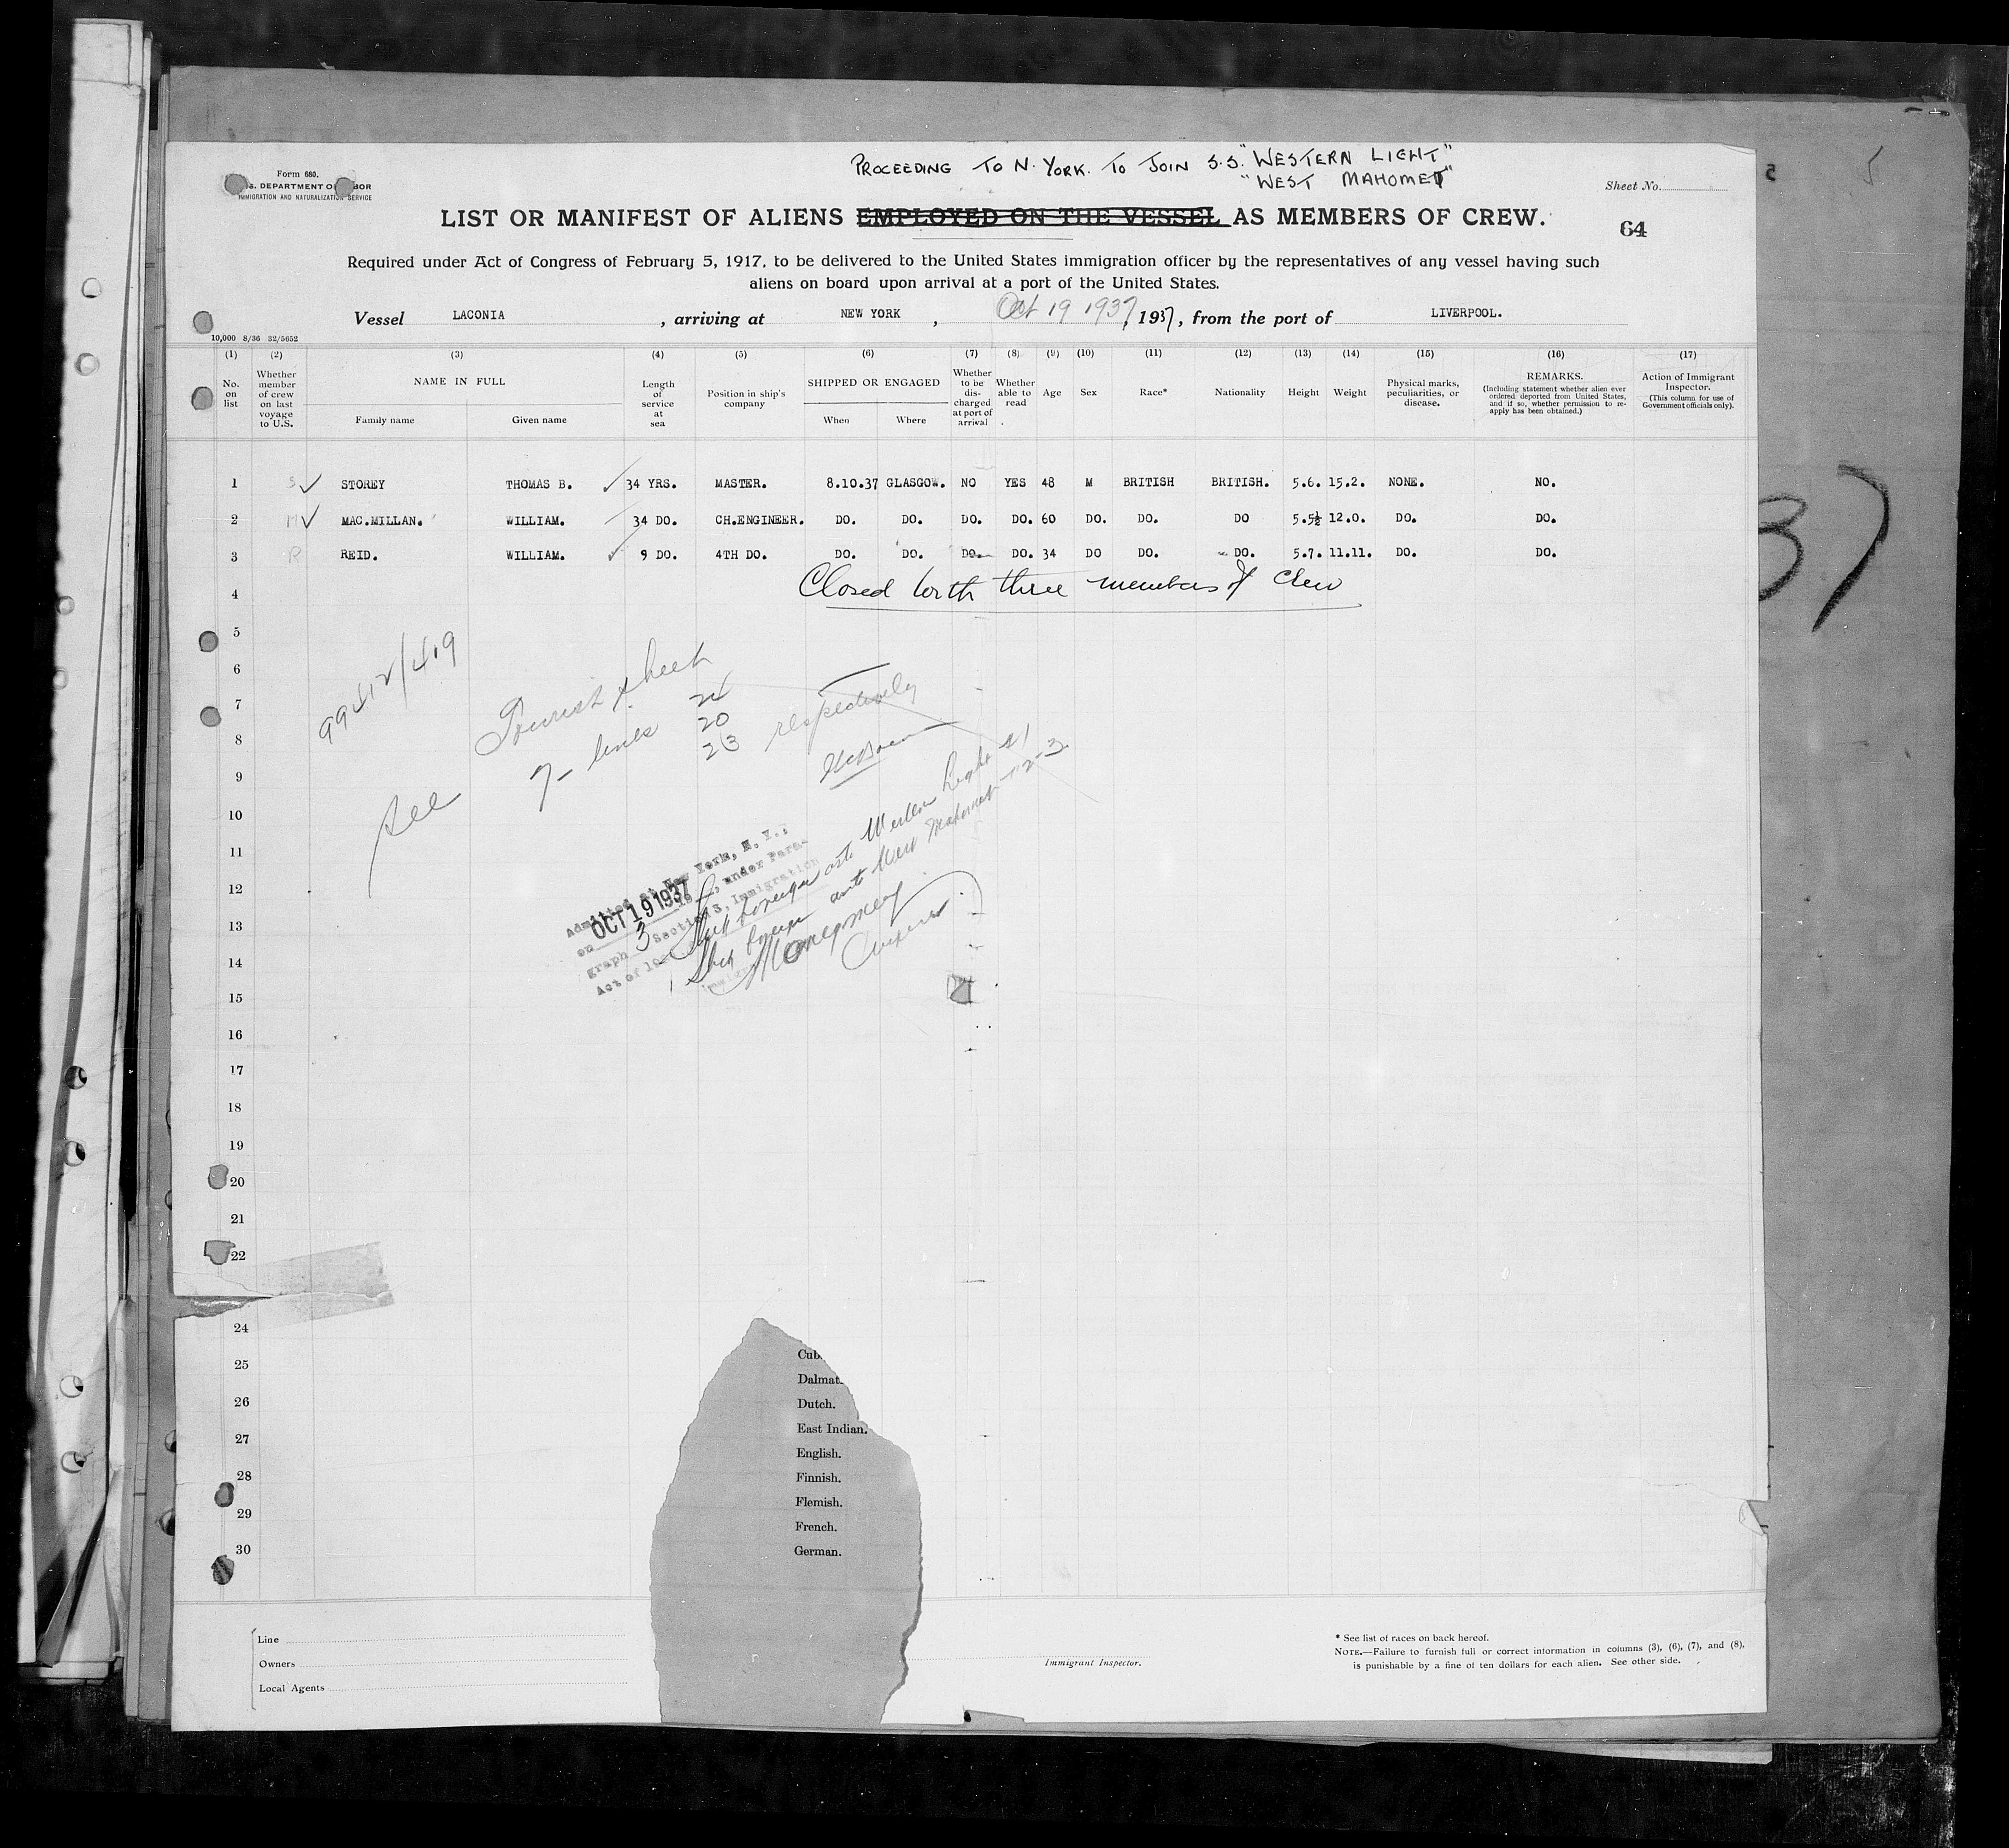 PROCEEDING TO N. YORK. TO JOIN S.S. "WESTERN LIGHT"
"WEST MAHOMET"
Form 680.
U.S. DEPARTMENT OF LABOR
IMMIGRATION AND NATURALIZATION SERVICE
Sheet No.
64
LIST OR MANIFEST OF ALIENS EMPLOYED ON THE VESSEL AS MEMBERS OF CREW.
Required under Act of Congress of February 5, 1917, to be delivered to the United States immigration officer by the representatives of any vessel having such
aliens on board upon arrival at a port of the United States.
Vessel LACONIA, arriving at NEW YORK, Oct 19 1937, 1937, from the port of LIVERPOOL.
10,000 8/36 32/5652
(1) (2) (3) (4) (5) (6) (7) (8) (9) (10) (11) (12) (13) (14) (15) (16) (17)
No. on list
Whether member of crew on last voyage to U.S.
NAME IN FULL
Family name Given name
Length of service at sea
Position in ship's company
SHIPPED OR ENGAGED
When Where
Whether to be discharged at port of arrival
Whether able to read
Age
Sex
Race*
Nationality
Height
Weight
Physical marks, peculiarities, or disease.
REMARKS.
(Including statement whether alien ever ordered deported from United States, and if so, whether permission to re-apply has been obtained.)
Action of Immigrant Inspector.
(This column for use of Government officials only).
1 S STOREY THOMAS B. 34 YRS. MASTER. 8.10.37 GLASGOW. NO YES 48 M BRITISH BRITISH. 5.6. 15.2. NONE. NO.
2 M MAC.MILLAN. WILLIAM. 34 DO. CH.ENGINEER. DO. DO. DO. DO. 60 DO. DO. DO 5.5½ 12.0. DO. DO.
3 R REID. WILLIAM. 9 DO. 4TH DO. DO. DO. DO. DO. 34 DO DO. DO. 5.7. 11.11. DO. DO.
Closed with three members of Crew
4
5
6
7
8
9
10
11
12
13
14
15
16
17
18
19
20
21
22
24
25
26
27
28
29
30
99512/419
See Tourist sheet
7- lines 24
20
23 respectively
Admitted at New York, N. Y.,
on OCT 19 1937, under Para-
graph 3 Section 3, Immigration
Act of
Ship foreign
West Mahomet 2-3
37
5
Cub.
Dalmat.
Dutch.
East Indian.
English.
Finnish.
Flemish.
French.
German.
Line
Owners
Local Agents
Immigrant Inspector.
* See list of races on back hereof.
NOTE.—Failure to furnish full or correct information in columns (3), (6), (7), and (8),
is punishable by a fine of ten dollars for each alien. See other side.